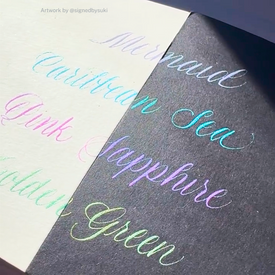 Artwork by @signedbyyuki
Mermaid
Caribbean Sea
Pink Sapphire
Golden Green